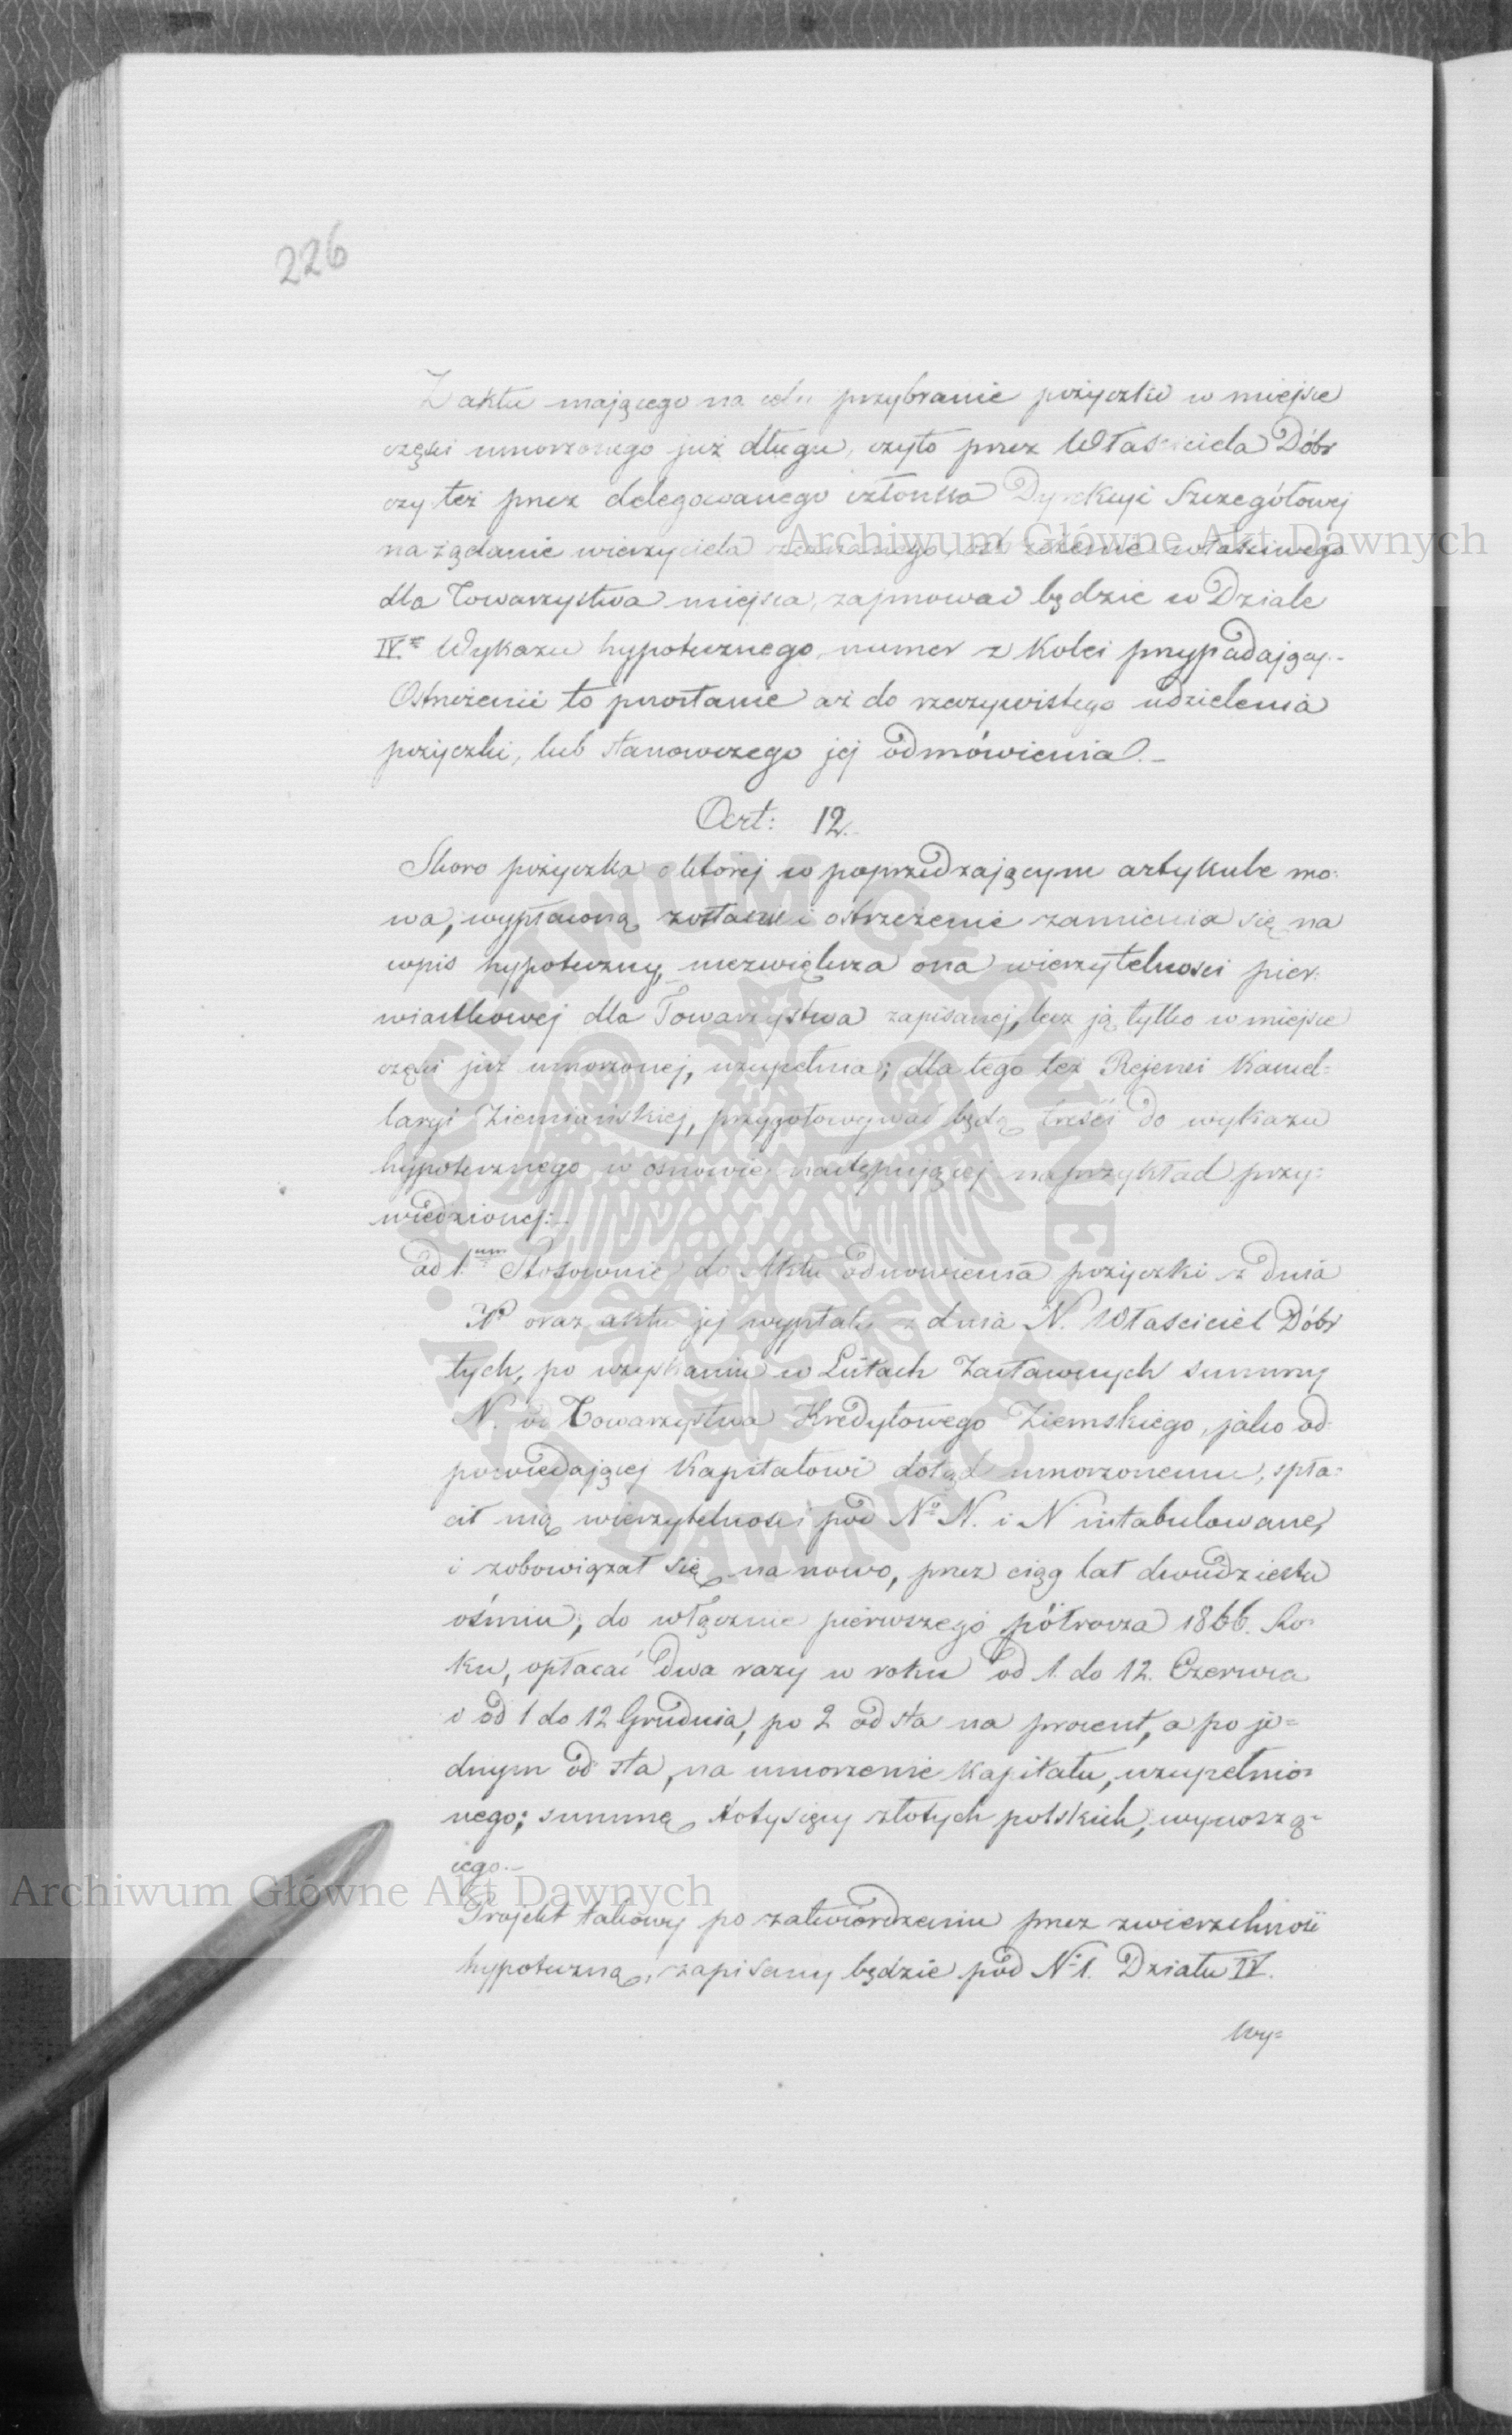 226
Z aktu mającego na celu przybranie pożyczki w miejsce
części umorzonego już długu, czyto przez Właściciela Dóbr
czy też przez delegowanego członka Dyrekcyi Szczegółowej
na żądanie wierzyciela ostrzeżenie właściwego
dla Towarzystwa miejsca, zajmować będzie w Dziale
IV.m Wykazu hypotecznego numer z kolei przypadający.-
Ostrzeżenie to pozostanie aż do rzeczywistego udzielenia
pożyczki, lub stanowczego jej odmówienia.-
Art: 12.
Skoro pożyczka o której w poprzedzającym artykule mo:
wa, wypłaconą zostanie i ostrzeżenie zamienia się na
wpis hypoteczny, niezwiększa ona wierzytelności pier:
wiastkowej dla Towarzystwa zapisanej, lecz ją tylko w miejsce
części już umorzonej, uzupełnia; dla tego też Rejenci Kancel=
laryi Ziemiańskiej, przygotowywać będą treści do wykazu
hypotecznego w osnowie następującej naprzykład przy:
wiedzionej:-
ad 1.um Stosownie do Aktu odnowienia pożyczki z dnia
N. oraz aktu jej wypłaty z dnia N. Właściciel Dóbr
tych, po uzyskaniu w Listach Zastawnych summy
N. od Towarzystwa Kredytowego Ziemskiego, jako od-
powiedającej kapitałowi dotąd umorzonemu, spła:
cił nią wierzytelności pod No N. i N intabulowane,
i zobowiązał się na nowo, przez ciąg lat dwudziestu
ośmiu, do włącznie pierwszego półrocza 1866. Ro-
ku, opłacać dwa razy w roku od 1. do 12. Czerwca
i od 1 do 12 Grudnia, po 2 od sta na procent, a po je=
dnym od sta, na umorzenie kapitału, uzupełnio=
nego; summę stotysięcy złotych polskich, wynoszą=
cego.-
Projekt takowy po zatwierdzeniu przez zwierzchność
hypoteczną, zapisany będzie pod No 1. Działu IV.
Wy=
Archiwum Główne Akt Dawnych
Archiwum Główne Akt Dawnych
ARCHIWUM GŁÓWNE AKT DAWNYCH